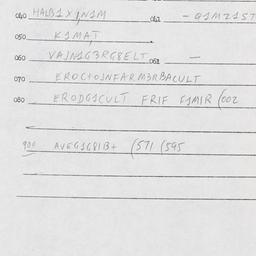 040 HALB1X1N1M 041 - Q1MZ1ST
050 K1MAT
060 VAJN1G3RG8ELT 061 -
070 EROC10JNFARM3RBACULT
080 ERODG1CULT FRIF K1MIR (002
900 AVEG1G81B+ (571 (595